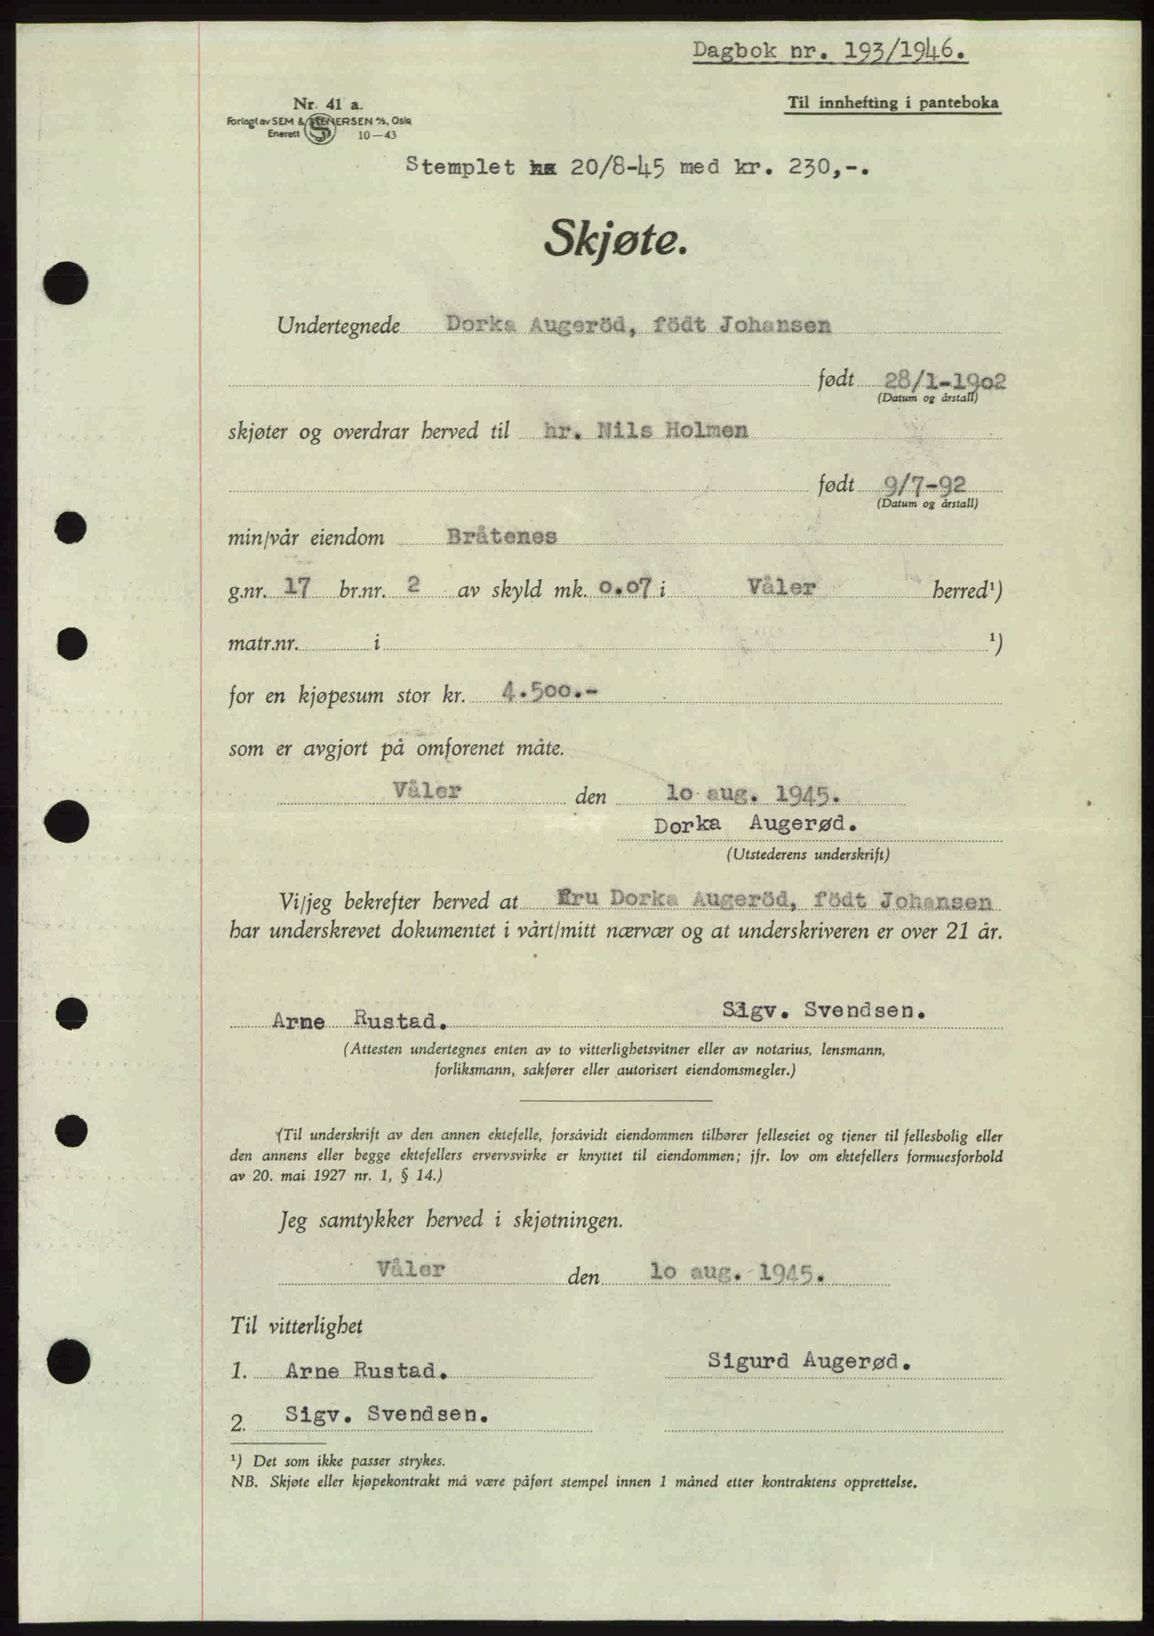 Dagbok nr. 193/1946.
Nr. 41 a.
Til innhefting i panteboka
Forlagt av SEM & STENERSEN A/S, Oslo
Enerett 10-43
Stemplet 20/8-45 med kr. 230,-.
Skjøte.
Undertegnede Dorka Augeröd, födt Johansen
født 28/1-1902
(Datum og årstall)
skjøter og overdrar herved til hr. Nils Holmen
født 9/7-92
(Datum og årstall)
min/vår eiendom Bråtenes
g.nr. 17 br.nr. 2 av skyld mk. 0.07 i Våler herred¹)
matr.nr. i ¹)
for en kjøpesum stor kr. 4.500.-
som er avgjort på omforenet måte.
Våler den 10 aug. 1945.
Dorka Augerød.
(Utstederens underskrift)
Vi/jeg bekrefter herved at Fru Dorka Augeröd, födt Johansen
har underskrevet dokumentet i vårt/mitt nærvær og at underskriveren er over 21 år.
Arne Rustad. Sigv. Svendsen.
(Attesten undertegnes enten av to vitterlighetsvitner eller av notarius, lensmann,
forliksmann, sakfører eller autorisert eiendomsmegler.)
(Til underskrift av den annen ektefelle, forsåvidt eiendommen tilhører felleseiet og tjener til fellesbolig eller
den annens eller begge ektefellers ervervsvirke er knyttet til eiendommen; jfr. lov om ektefellers formuesforhold
av 20. mai 1927 nr. 1, § 14.)
Jeg samtykker herved i skjøtningen.
Våler den 10 aug. 1945.
Til vitterlighet
1. Arne Rustad. Sigurd Augerød.
2. Sigv. Svendsen.
¹) Det som ikke passer strykes.
NB. Skjøte eller kjøpekontrakt må være påført stempel innen 1 måned etter kontraktens opprettelse.